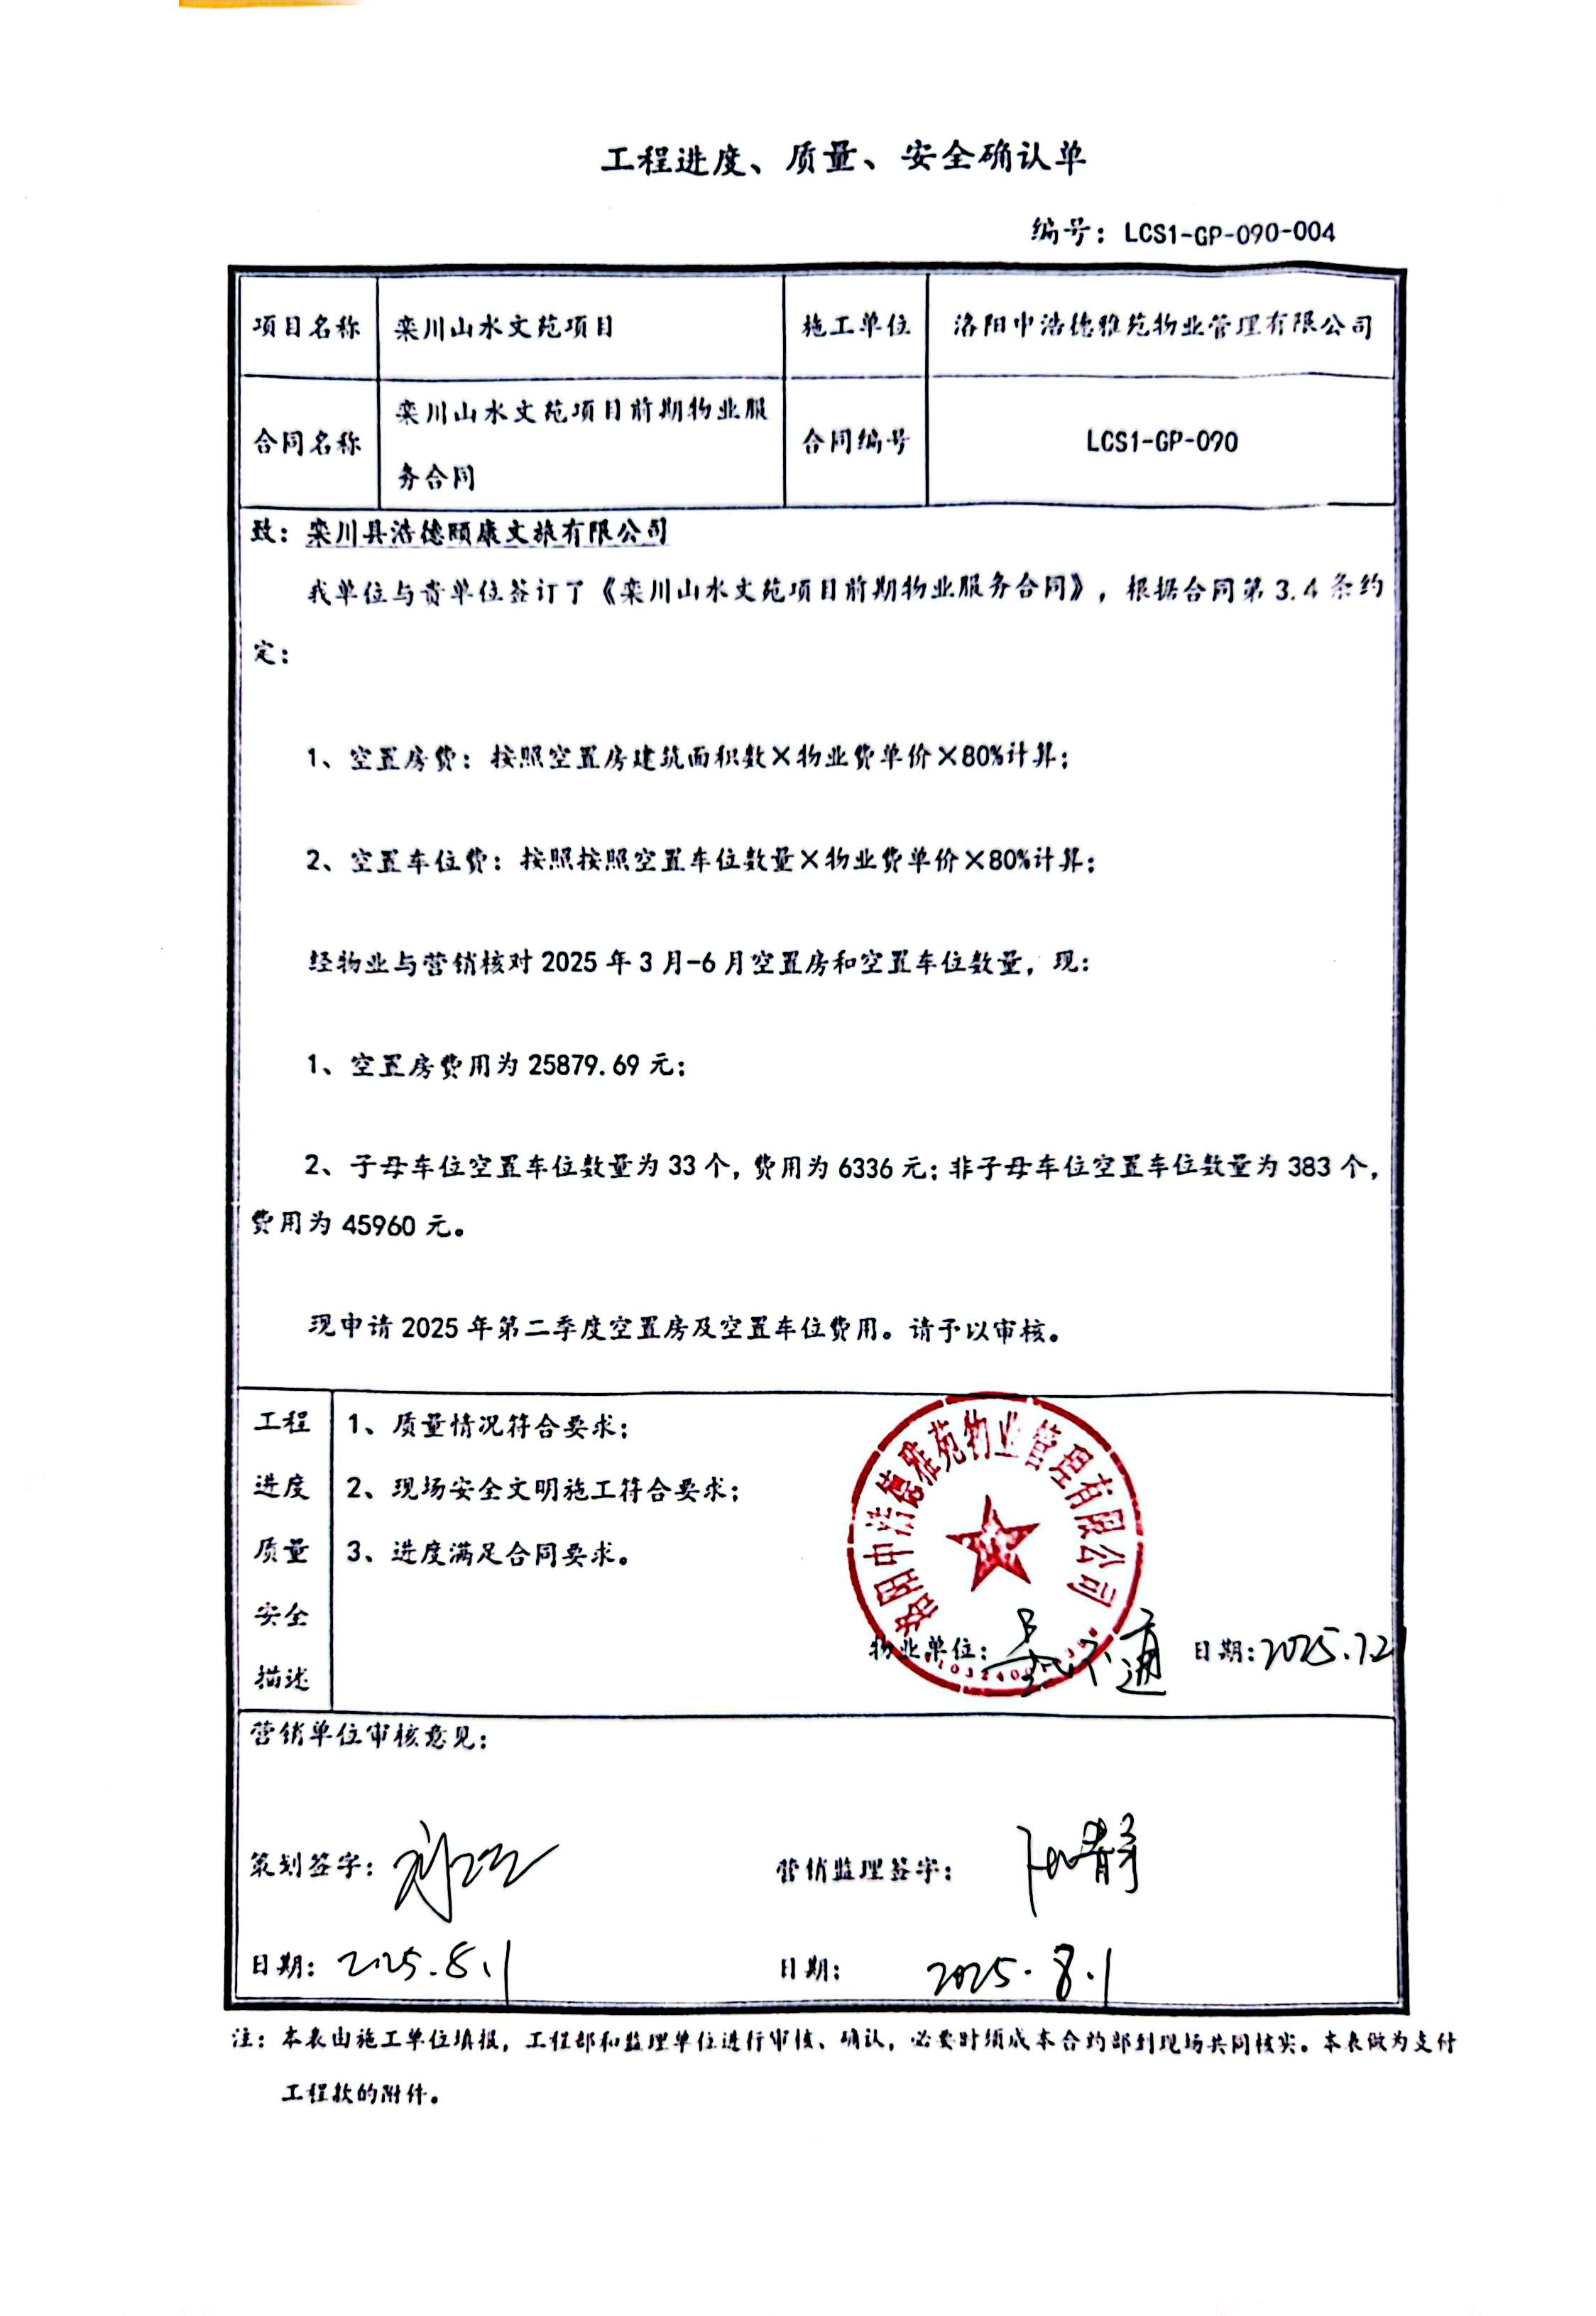 工程进度、质量、安全确认单
编号：LCS1-GP-090-004
项目名称 栾川山水文苑项目 施工单位 洛阳中浩德雅苑物业管理有限公司
合同名称 栾川山水文苑项目前期物业服务合同 合同编号 LCS1-GP-090
致：栾川县浩德颐康文旅有限公司
我单位与贵单位签订了《栾川山水文苑项目前期物业服务合同》，根据合同第 3.4 条约
定：
1、空置房费：按照空置房建筑面积数×物业费单价×80%计算；
2、空置车位费：按照按照空置车位数量×物业费单价×80%计算；
经物业与营销核对 2025 年 3 月-6 月空置房和空置车位数量，现：
1、空置房费用为 25879.69 元；
2、子母车位空置车位数量为 33 个，费用为 6336 元；非子母车位空置车位数量为 383 个，
费用为 45960 元。
现申请 2025 年第二季度空置房及空置车位费用。请予以审核。
工程
进度
质量
安全
描述
1、质量情况符合要求；
2、现场安全文明施工符合要求；
3、进度满足合同要求。
洛阳中浩德雅苑物业管理有限公司
物业单位： 日期：2025.7.21
营销单位审核意见：
策划签字： 营销监理签字：
日期：2025.8.1 日期：2025.8.1
注：本表由施工单位填报，工程部和监理单位进行审核、确认，必要时须成本合约部到现场共同核实。本表做为支付
工程款的附件。